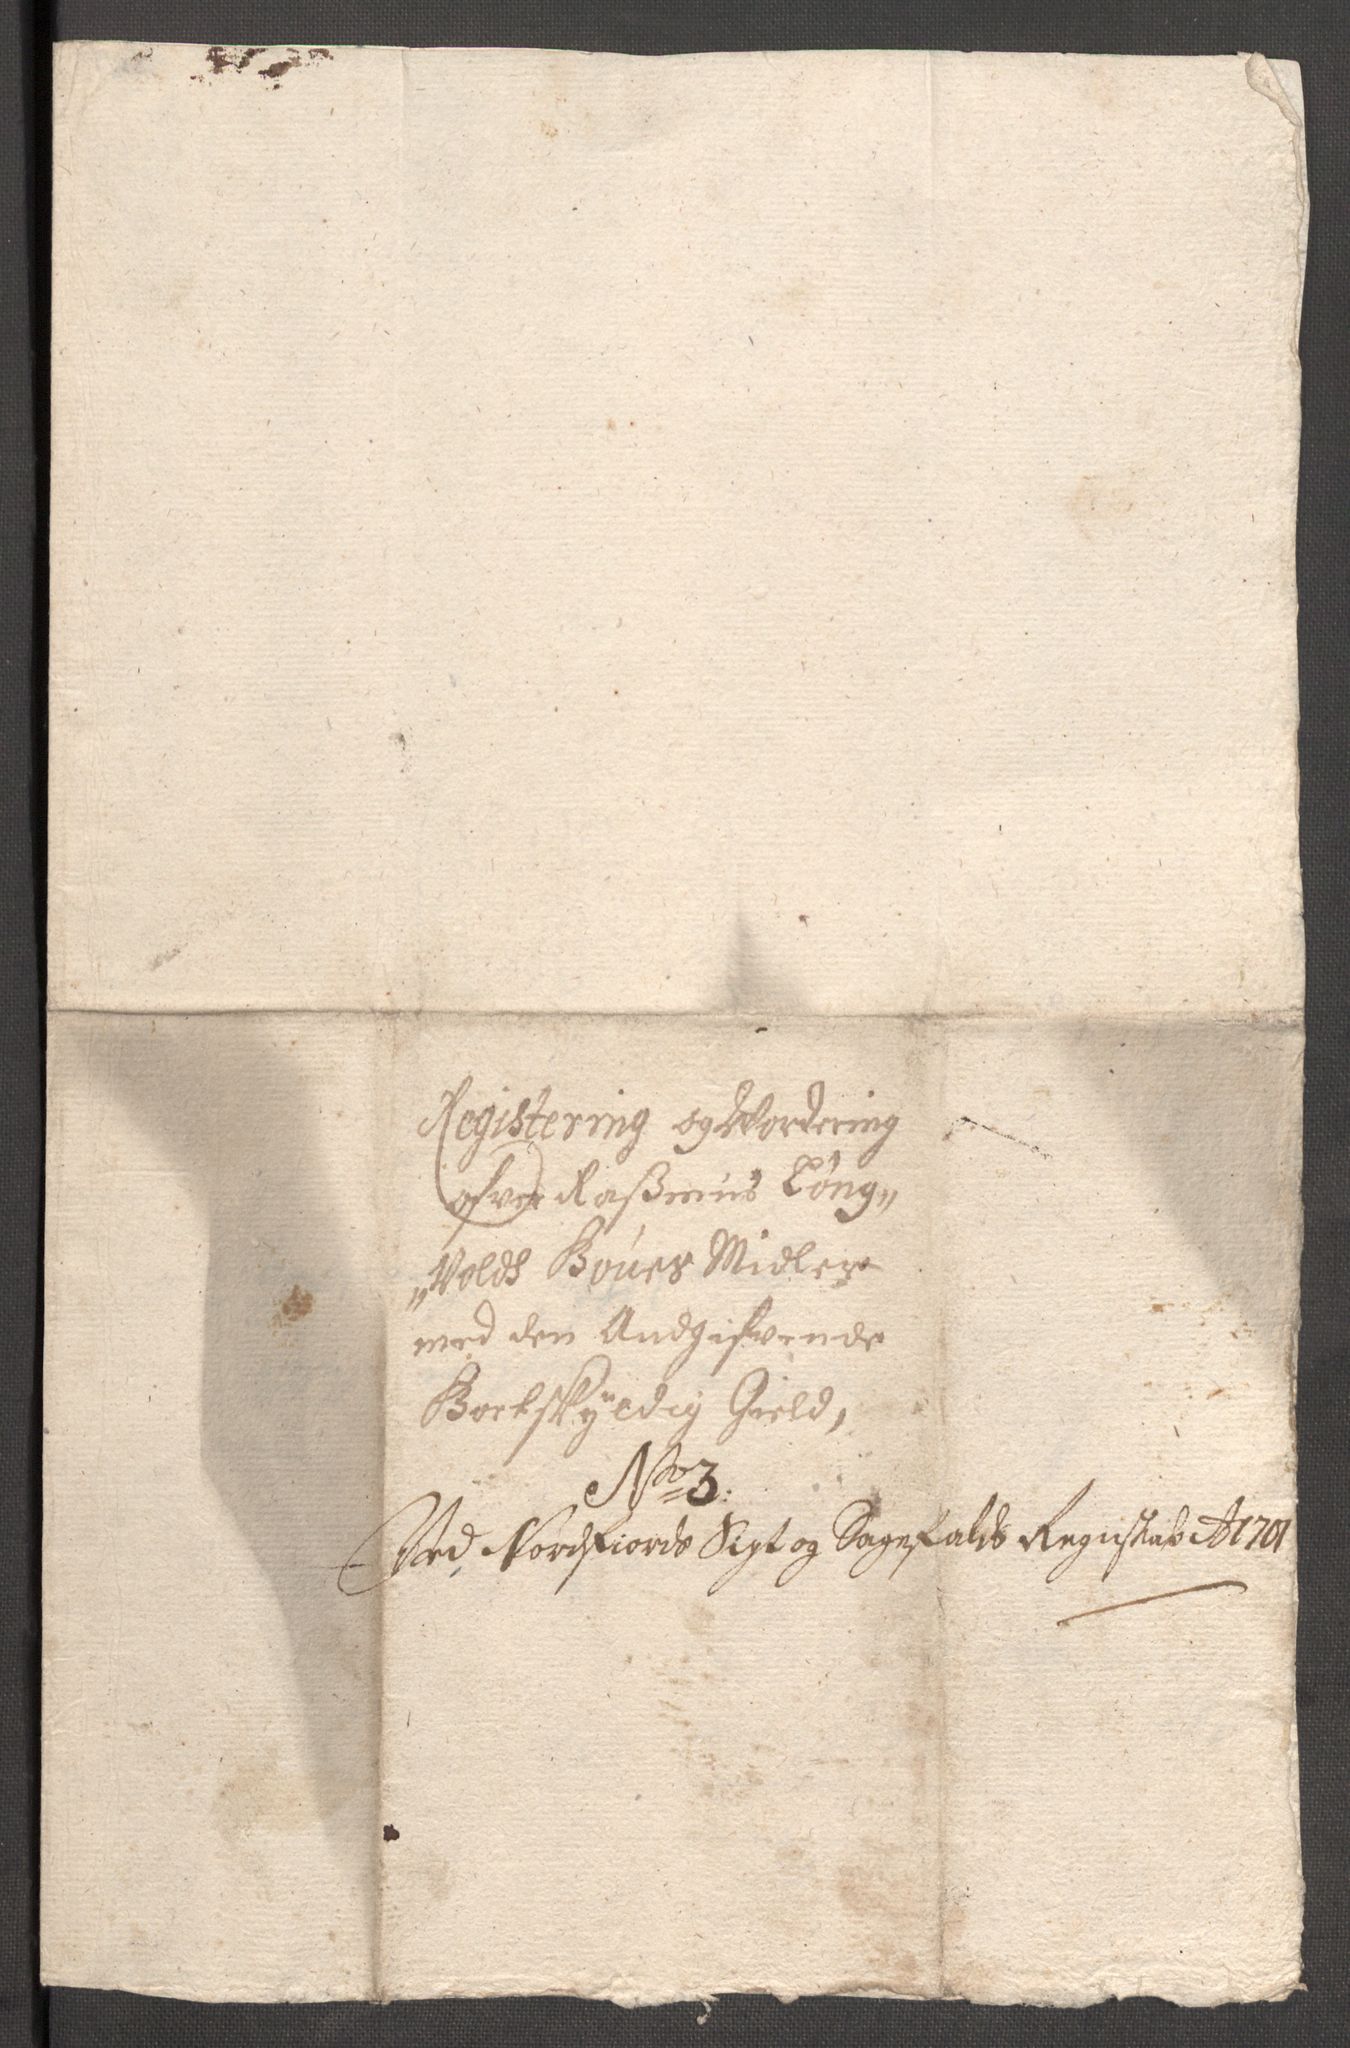 Registering og Vordering
ofver Raßmus Løng„
„Volds Boues Midler
med den Andgifvende
Bortskÿldig Gield,
No 3:
Ved Nordfiords Sigt og Sagefalds Regnskab Ao 1701